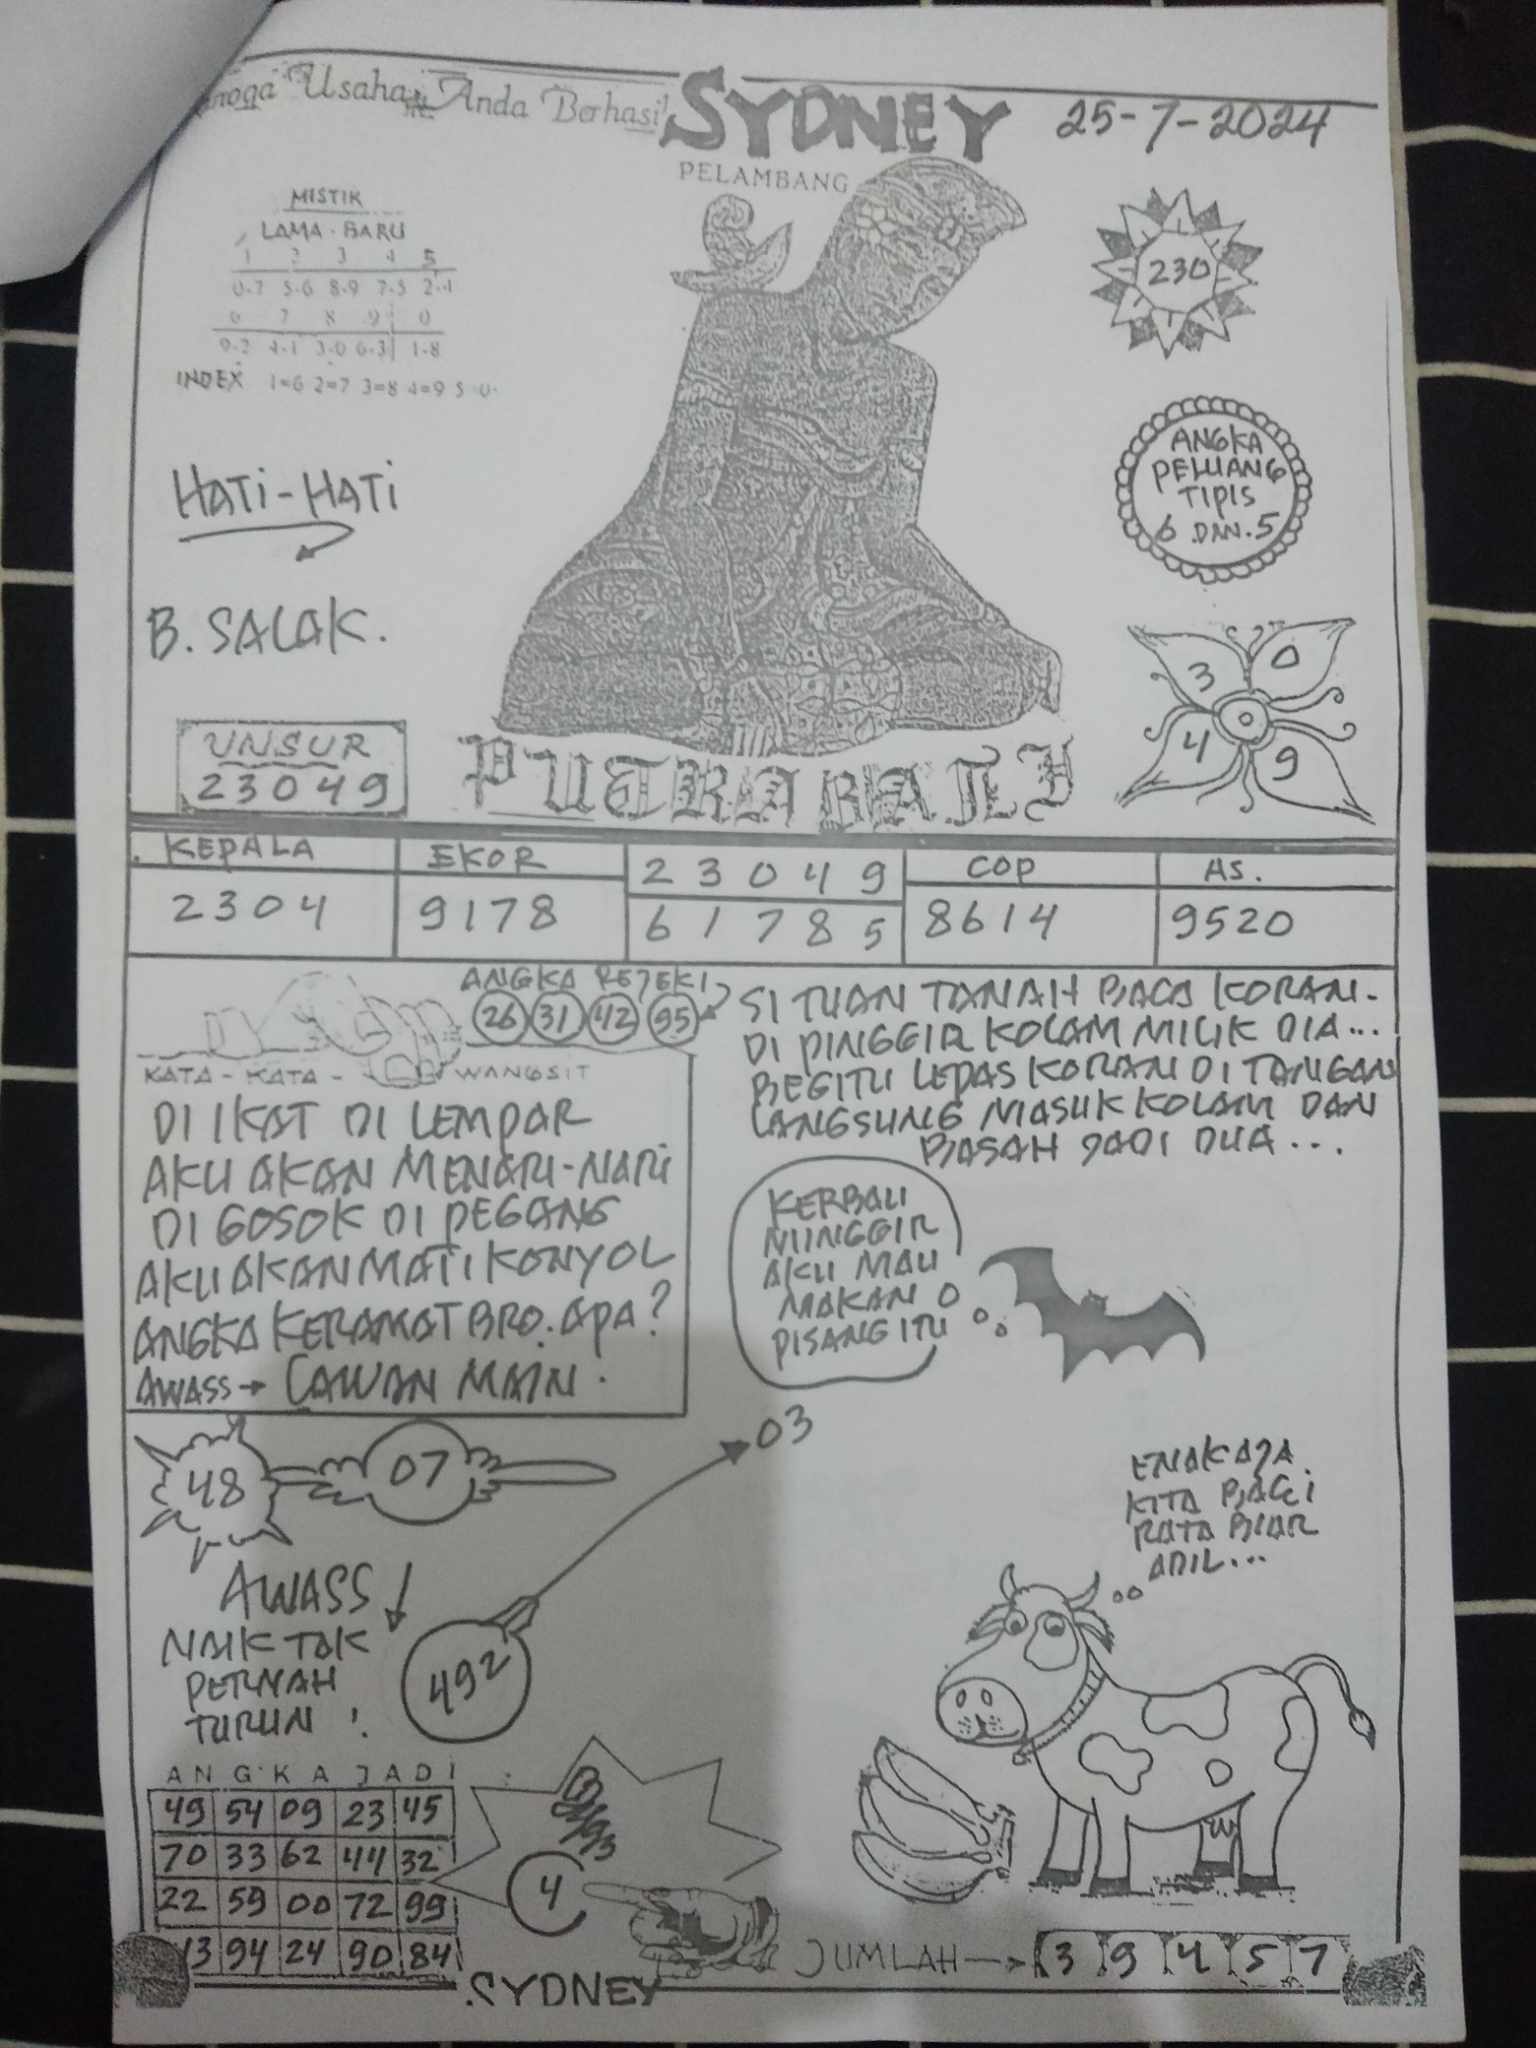 Usaha Anda Berhasil
SYDNEY
25-7-2024
PELAMBANG
MISTIK
LAMA - BARU
1 2 3 4 5
0-7 5-6 8-9 7-5 2-4
6 7 8 9 0
9-2 4-1 3-0 6-3 1-8
INDEX 1=6 2=7 3=8 4=9 5 0
230
HATI-HATI
B. SALAK.
ANGKA
PELUANG
TIPIS
6 DAN 5
3 0
4 9
UNSUR
23049
PUTRA BALI
KEPALA
2304
EKOR
9178
2 3 0 4 9
6 1 7 8 5
COP
8614
AS.
9520
ANGKA REJEKI
26 31 42 95
KATA - KATA - WANGSIT
DI IKAT DI LEMPAR
AKU AKAN MENARI-NARI
DI GOSOK DI PEGANG
AKU AKAN MATI KONYOL
ANGKA KERAMAT BRO. APA?
AWASS → CAWAN MAIN.
SI TUAN TANAH BACA KORAN.
DI PINGGIR KOLAM MILIK DIA...
BEGITU LEPAS KORAN DI TANGAN
LANGSUNG MASUK KOLAM DAN
BASAH JADI DUA...
KERBAU
MINGGIR
AKU MAU
MAKAN
PISANG ITU
48
07
03
AWASS
NAIK TAK
PERNAH
TURUN !
492
ENAK AJA
KITA BAGI
RATA BIAR
ADIL...
ANGKA JADI
49 54 09 23 45
70 33 62 44 32
22 59 00 72 99
13 94 24 90 84
4
JUMLAH → 3 9 4 5 7
SYDNEY